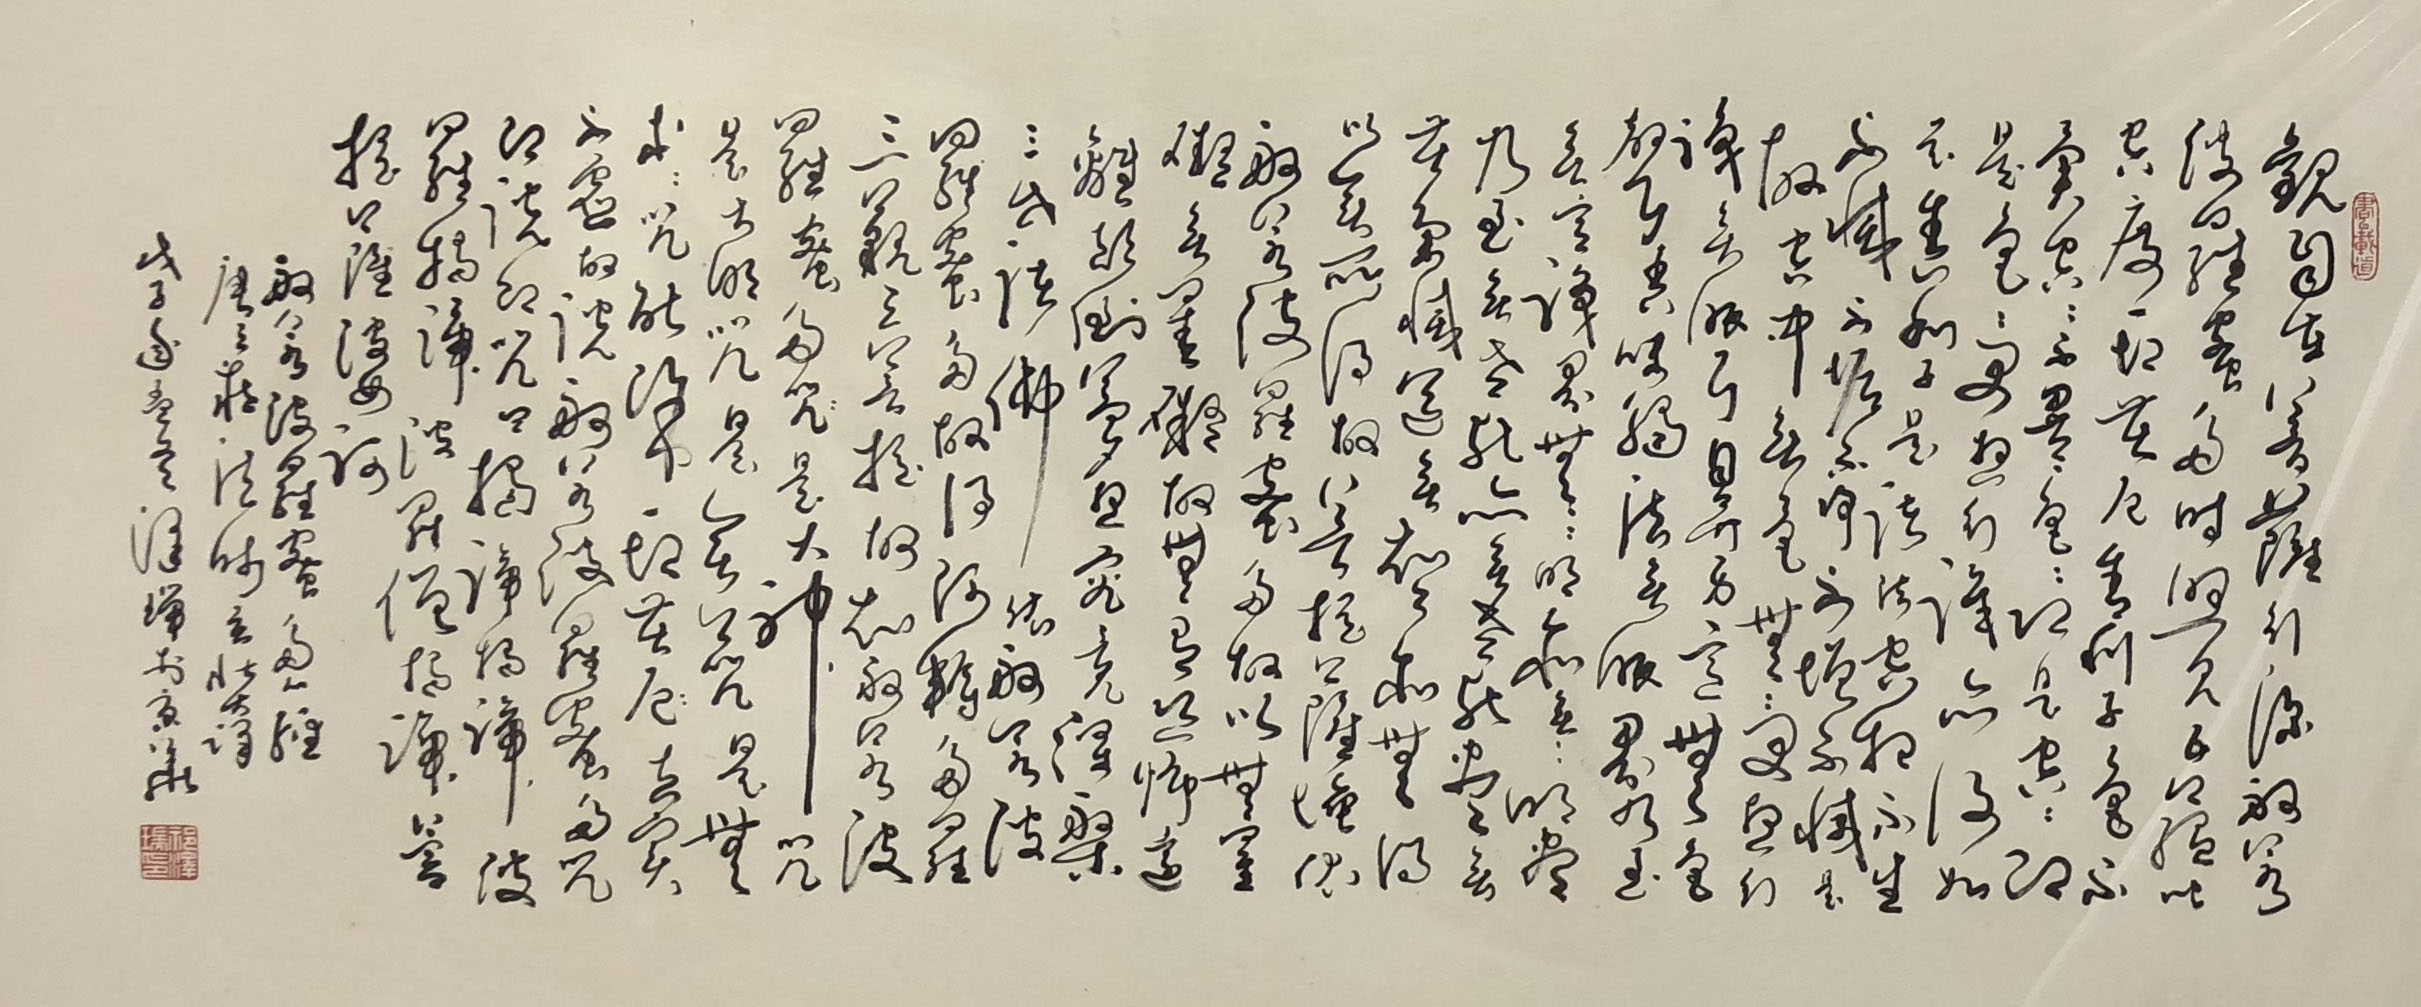 書以載道
觀自在菩薩行深般若
波羅蜜多時照見五蘊皆
空度一切苦厄舍利子色不
異空〻不異色〻即是空〻即
是色〻受想行識亦復如
是舍利子是諸法空相不生
不滅不垢不淨不增不減是
故空中無色無〻受想行
識無眼耳鼻舌身意無色
聲香味觸法無眼界乃至
無意識界無〻明亦無〻明盡
乃至無老死亦無老死盡無
苦集滅道無智亦無得
以無所得故菩提薩埵依
般若波羅蜜多故心無罣
礙無罣礙故無有恐怖遠
離顛倒夢想究竟涅槃
三世諸佛依般若波
羅蜜多故得阿耨多羅
三藐三菩提故知般若波
羅蜜多咒是大神咒
是大明咒是無上咒是無
等〻咒能除一切苦厄真實
不虛故說般若波羅蜜多咒
即說咒曰揭諦揭諦波
羅揭諦波羅僧揭諦菩
提薩婆訶
般若波羅蜜多心經
唐三藏法師玄奘譯
戊子澤瑞於京華
祁澤瑞印